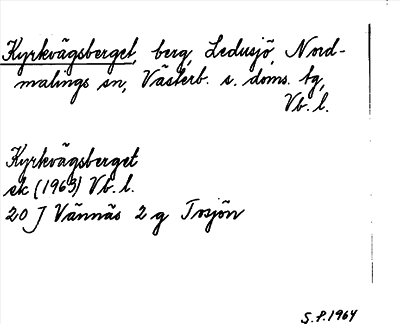 Kyrkvägsberget, berg, Ledusjö, Nord-
malings sn, Västerb. s. doms. tg,
Vb. l.
Kyrkvägsberget
ek (1963) Vb. l.
20 J Vännäs 2 g Tosjön
S.P. 1964